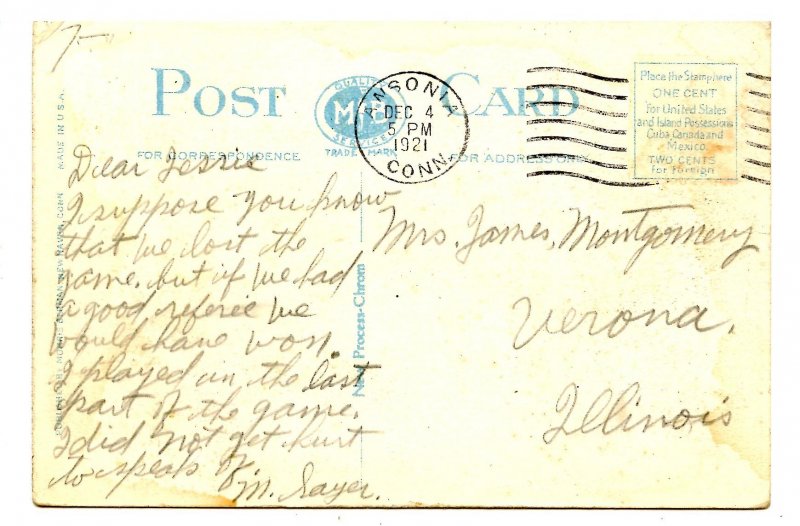 7-
POST CARD
QUALITY
SERVICE
TRADE MARK
ANSONIA
DEC 4
5 PM
1921
CONN.
Place the Stamp here
ONE CENT
For United States
and Island Possessions
Cuba, Canada and
Mexico.
TWO CENTS
for Foreign
FOR CORRESPONDENCE
FOR ADDRESS ONLY
MADE IN U.S.A.
NEW HAVEN, CONN.
New Process-Chrom
Dear Jessie
I suppose you know
that we lost the
game. but if we had
a good referee we
would have won.
I played in the last
part of the game.
I did not get hurt
to speak of
M. Sayer.
Mrs. James, Montgomery
Verona,
Illinois